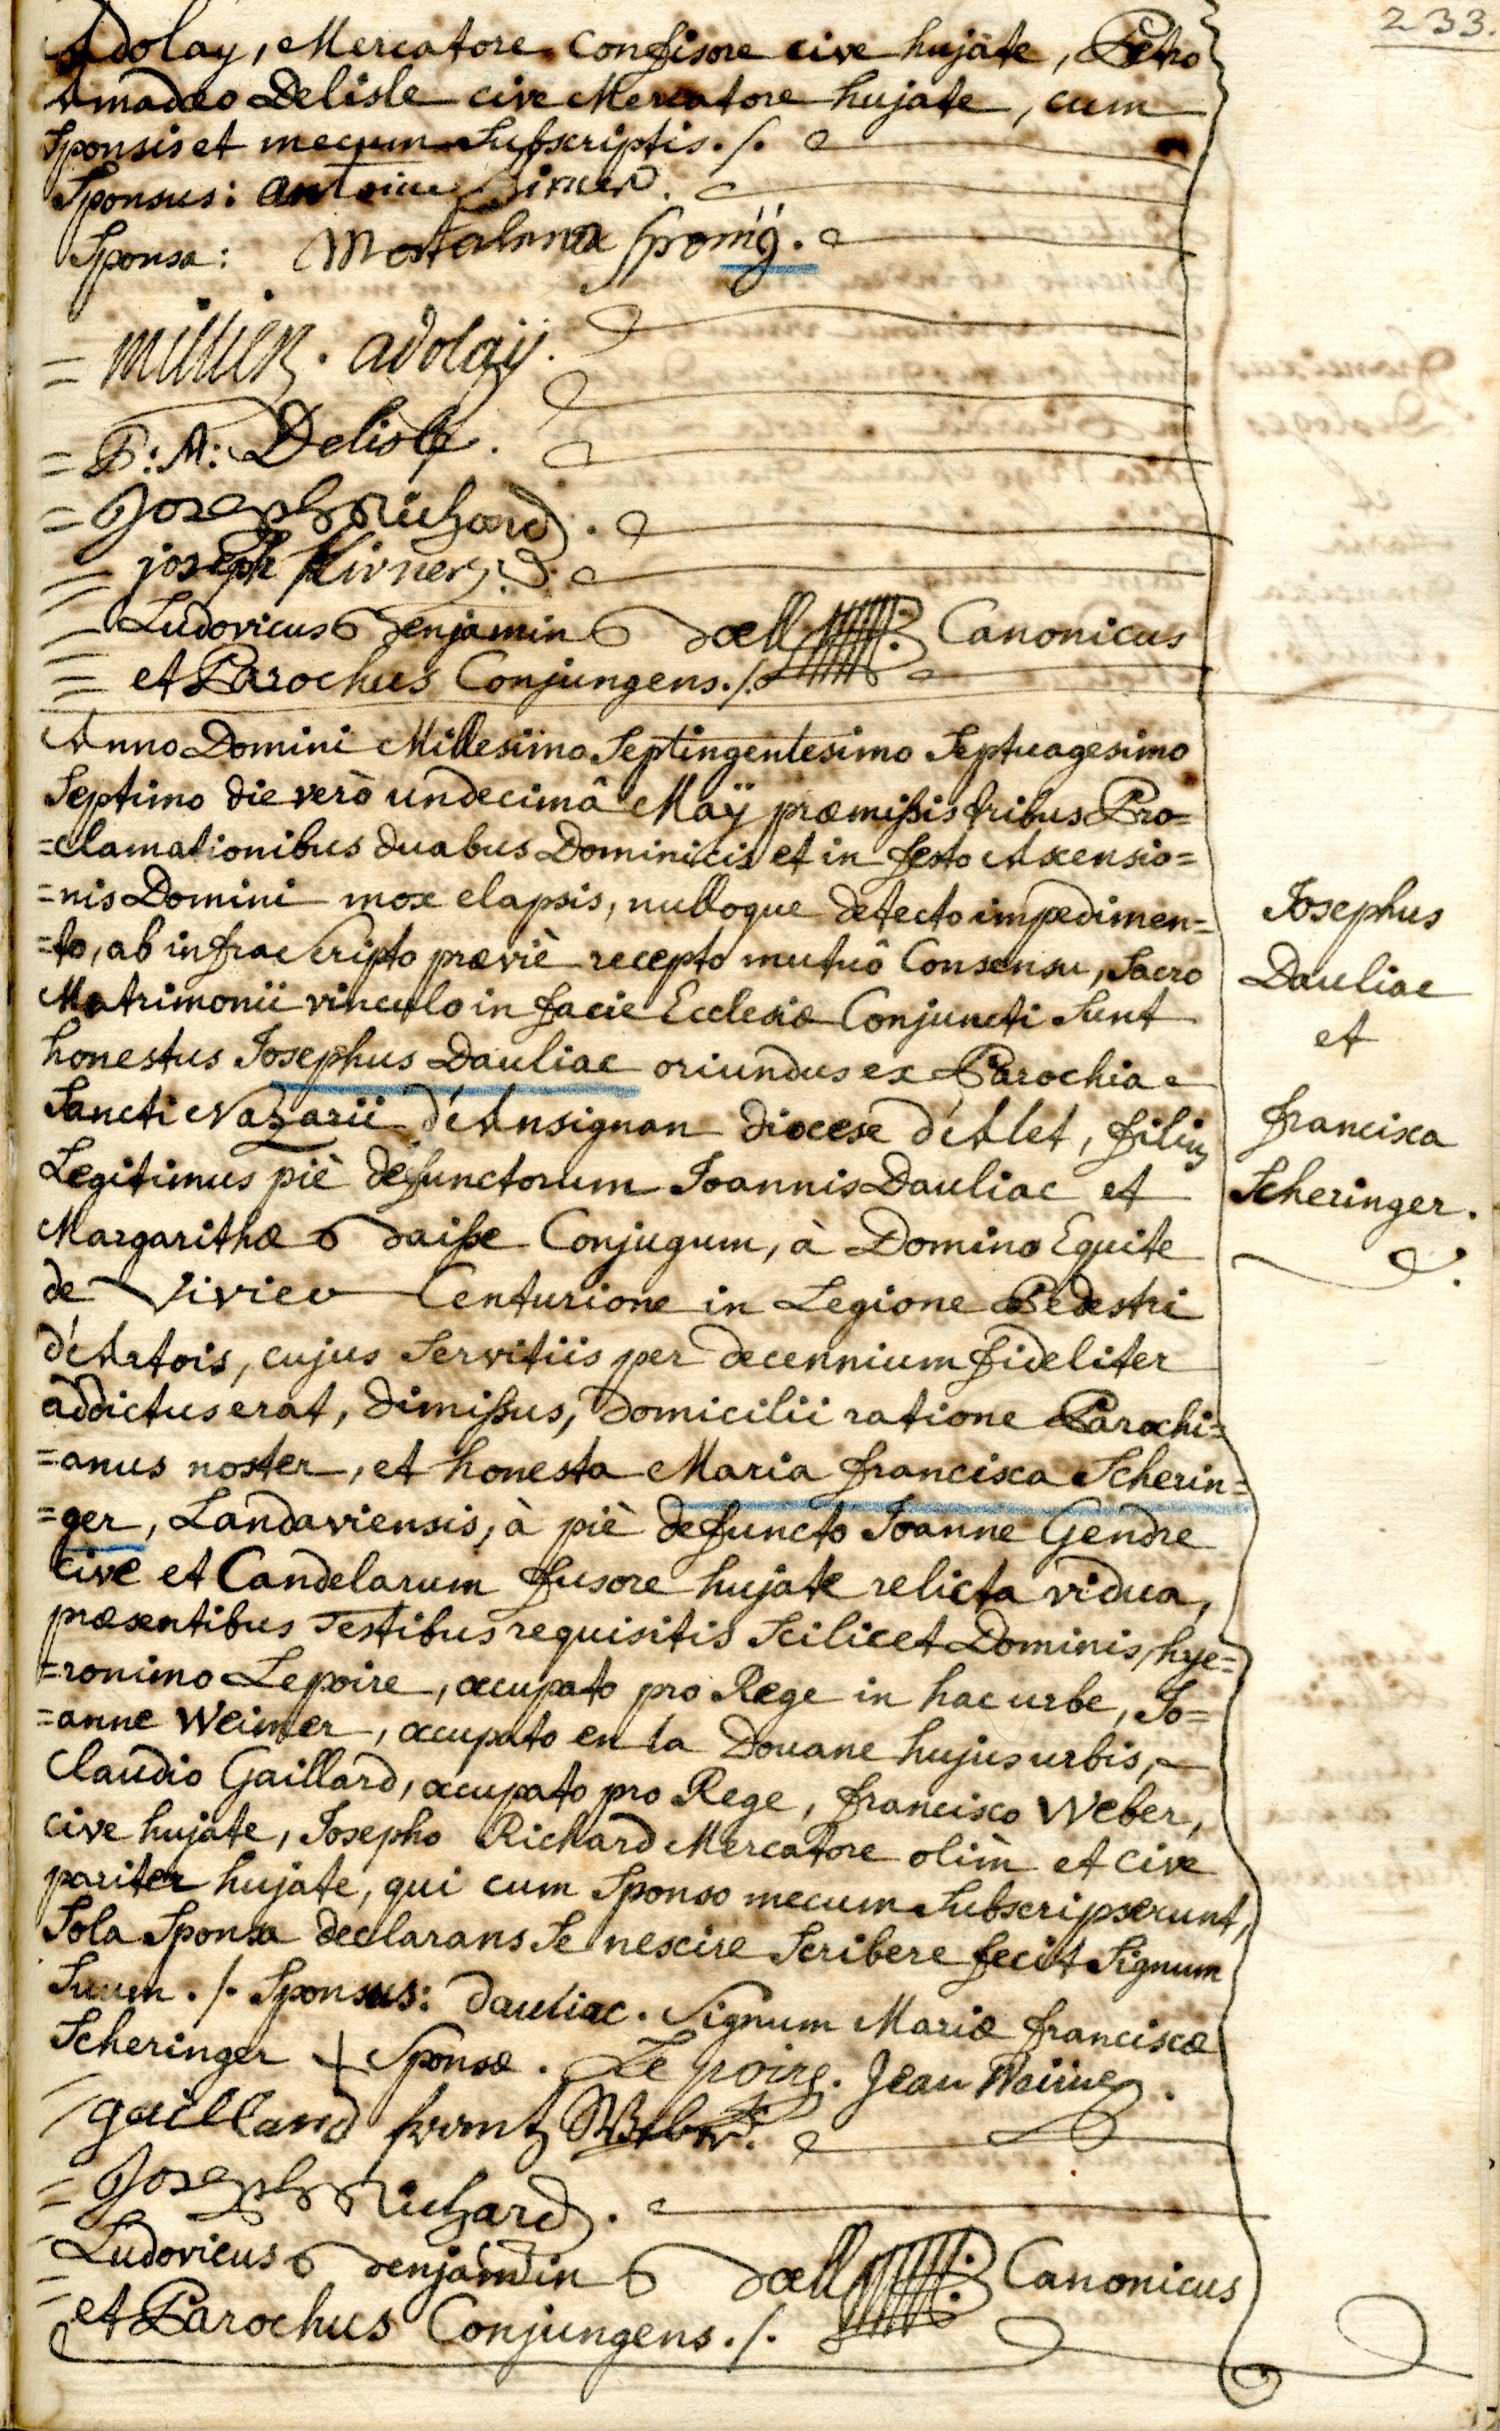 233.
Adolay, Mercatore Confisore cive hujate, Petro
Amadeo Delisle cive Mercatore hujate, cum
Sponsis et mecum Subscriptis ./.
Sponsus: antoine
Sponsa:
adolaÿ.
P: A: Delisle.
Joseph Richard.
joseph Kirner
Ludovicus Benjamin Boell Canonicus
et Parochus Conjungens ./.
Anno Domini Millesimo Septingentesimo Septuagesimo
Septimo die verò undecimâ Maÿ præmißis tribus Pro=
=clamationibus duabus Dominicis et in festo Ascensio=
=nis Domini mox elapsis, nulloque detecto impedimen=
=to, ab infrascripto præviè recepto mutuô Consensu, Sacro
Matrimonii vinculo in facie Ecclesiæ Conjuncti Sunt
honestus Josephus Dauliac oriundus ex Parochia
Sancti Nazarii d'Ansignan diocese d'Alet, filius
Legitimus piè defunctorum Joannis Dauliac et
Margarithæ Baiße Conjugum, à Domino Equite
de Vivieu Centurione in Legione Pedestri
d'Artois, cujus Servitiis per decennium fideliter
addictus erat, dimißus, domicilii ratione Parochi=
=anus noster, et honesta Maria francisca Scherin=
=ger, Landaviensis, à piè defuncto Joanne Gendre
cive et Candelarum fusore hujate relicta vidua,
præsentibus Testibus requisitis Scilicet Dominis hye=
=ronimo Lepoire, occupato pro Rege in hac urbe, Jo=
=anne Weimer, occupato en la Douane hujus urbis,
Claudio Gaillard, occupato pro Rege, francisco Weber,
cive hujate, Josepho Richard Mercatore olim et cive
pariter hujate, qui cum Sponso mecum Subscripserunt,
Sola Sponsa declarans Se nescire Scribere fecit Signum
Suum ./. Sponsus: dauliac. Signum Mariæ franciscæ
Scheringer + Sponsæ. Le poire. Jean
gaillard frantz Weber.
Joseph Richard.
Ludovicus Benjamin Boell Canonicus
et Parochus Conjungens ./.
Josephus
Dauliac
et
francisca
Scheringer.